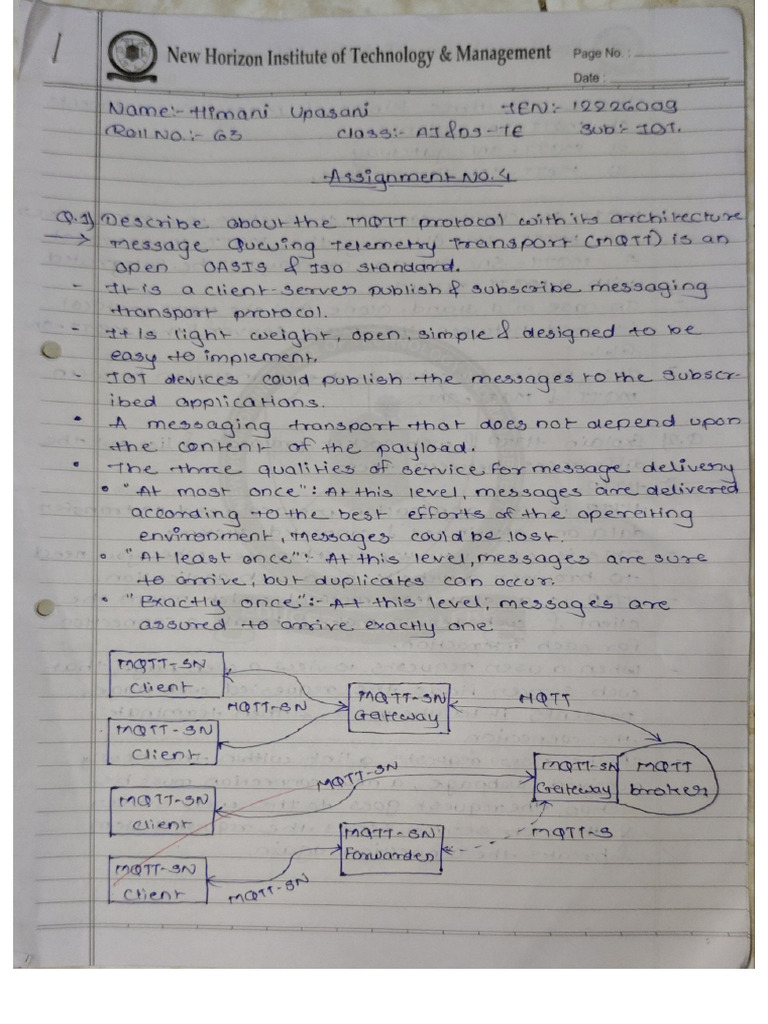 1
New Horizon Institute of Technology & Management Page No. :
Date :
Name:- Himani Upasani TEN:- 12226009
Roll No.:- 63 Class:- AI&DS-TE Sub:- IOT.
Assignment No. 4
Q.1) Describe about the MQTT protocol with its architecture
→ message Queuing Telemetry Transport (MQTT) is an
open OASIS & ISO standard.
- It is a client-server publish & subscribe messaging
transport protocol.
- It is light weight, open, simple & designed to be
easy to implement.
- IOT devices could publish the messages to the subscr-
ibed applications.
• A messaging transport that does not depend upon
the content of the payload.
• The three qualities of service for message delivery
• "At most once": At this level, messages are delivered
according to the best efforts of the operating
environment, messages could be lost.
• "At least once":- At this level, messages are sure
to arrive, but duplicates can occur.
• "Exactly once":- At this level, messages are
assured to arrive exactly one
MQTT-SN
Client
MQTT-SN
MQTT-SN
Gateway
MQTT
MQTT-SN
Client
MQTT-SN
MQTT-SN
Gateway
MQTT
broker
MQTT-SN
Client
MQTT-SN
Forwarder
MQTT-S
MQTT-SN
Client
MQTT-SN